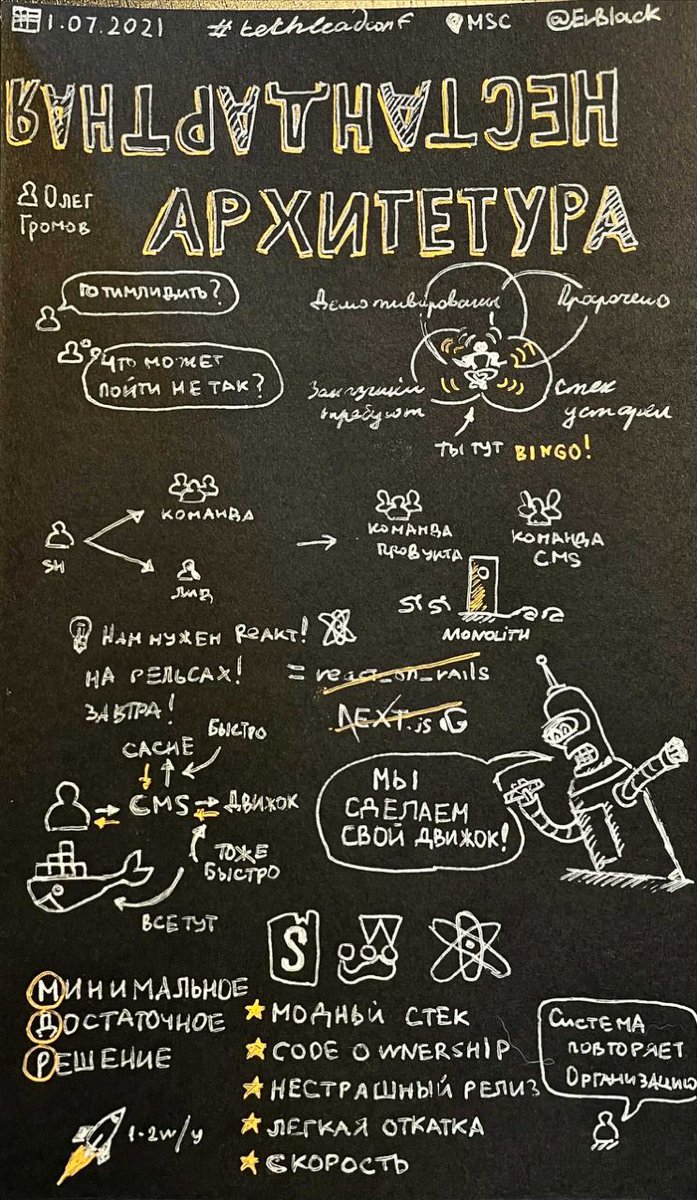 1.07.2021 #techleadconf MSC @ErBlack
НЕСТАНДАРТНАЯ
Олег
Громов
АРХИТЕТУРА
ГО ТИМЛИДИТЬ?
ЧТО МОЖЕТ
ПОЙТИ НЕ ТАК?
Демотивированы
Просрочено
Заказчики
требуют
Стек
устарел
ТЫ ТУТ BINGO!
SH
КОМАНДА
ЛИД
КОМАНДА
ПРОДУКТА
КОМАНДА
CMS
MONOLITH
НАМ НУЖЕН REAKT!
НА РЕЛЬСАХ!
ЗАВТРА!
= react_on_rails
NEXT.js
БЫСТРО
CACHE
CMS
ДВИЖОК
ТОЖЕ
БЫСТРО
ВСЕ ТУТ
МЫ
СДЕЛАЕМ
СВОЙ ДВИЖОК!
S
МИНИМАЛЬНОЕ
ДОСТАТОЧНОЕ
РЕШЕНИЕ
1-2w/y
МОДНЫЙ СТЕК
CODE OWNERSHIP
НЕСТРАШНЫЙ РЕЛИЗ
ЛЕГКАЯ ОТКАТКА
СКОРОСТЬ
СИСТЕМА
ПОВТОРЯЕТ
ОРГАНИЗАЦИЮ